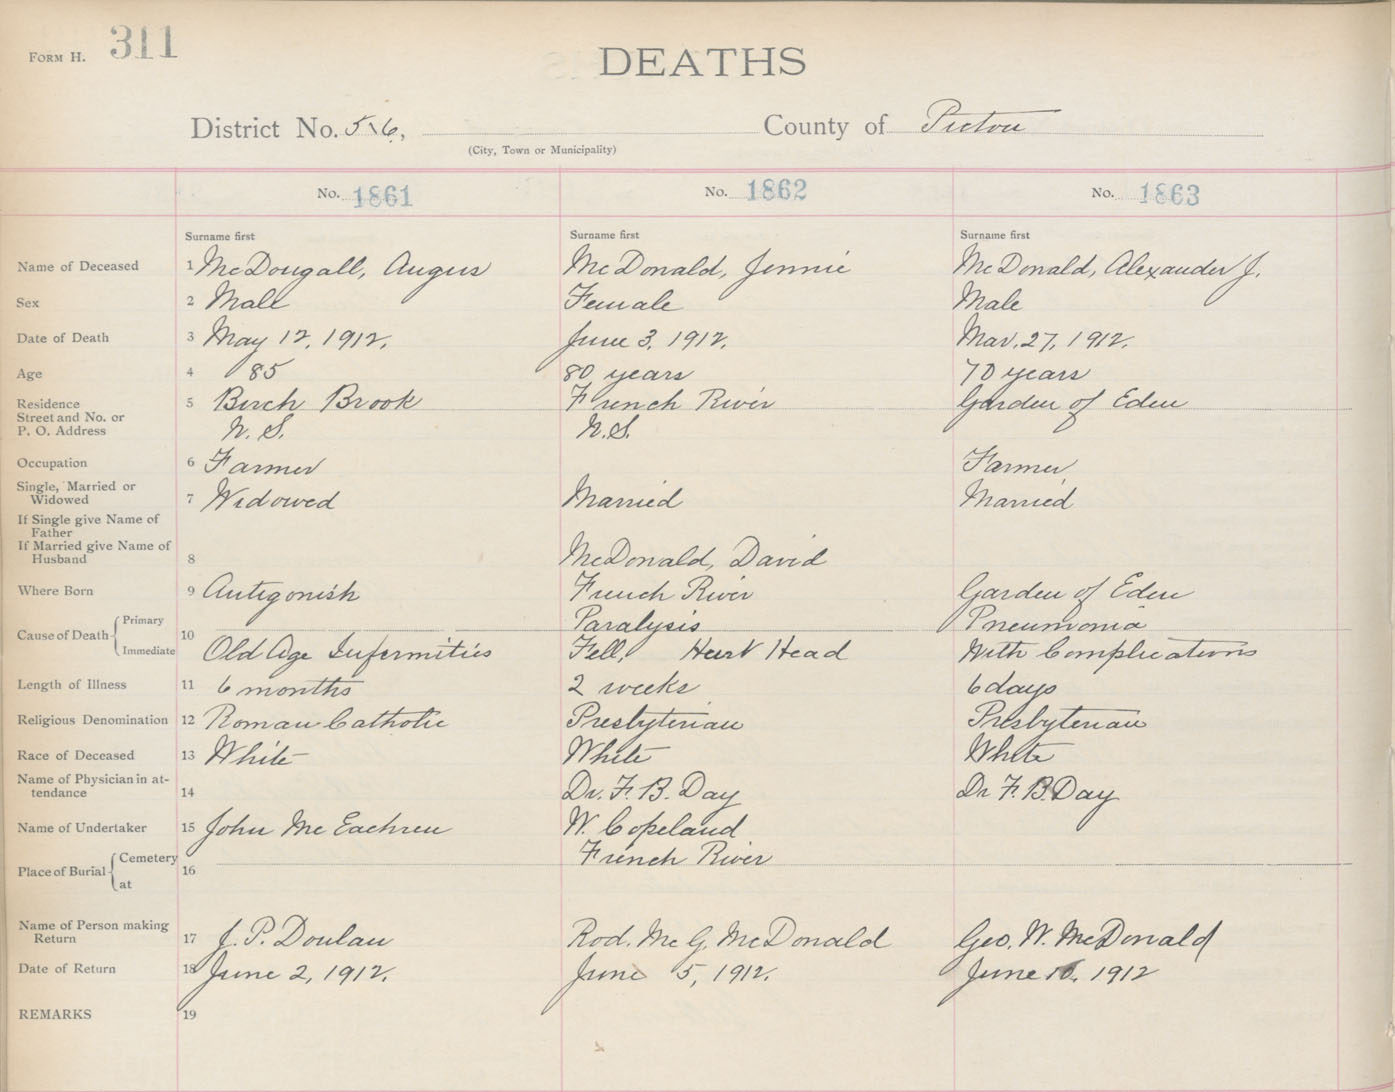 FORM H. 311
DEATHS
District No. 516, County of Pictou
(City, Town or Municipality)
No. 1861 No. 1862 No. 1863
Surname first Surname first Surname first
Name of Deceased 1 McDougall, Angus McDonald, Jennie McDonald, Alexander J.
Sex 2 Male Female Male
Date of Death 3 May 12, 1912. June 3, 1912. Mar. 27, 1912.
Age 4 85 80 years 70 years
Residence 5 Birch Brook French River Garden of Eden
Street and No. or
P. O. Address N. S. N.S.
Occupation 6 Farmer Farmer
Single, Married or
Widowed 7 Widowed Married Married
If Single give Name of
Father
If Married give Name of
Husband 8 McDonald, David
Where Born 9 Antigonish French River Garden of Eden
Primary Paralysis Pneumonia
Cause of Death 10
Immediate Old Age Infirmities Fell, Hurt Head With Complications
Length of Illness 11 6 months 2 weeks 6 days
Religious Denomination 12 Roman Catholic Presbyterian Presbyterian
Race of Deceased 13 White White White
Name of Physician in at-
tendance 14 Dr. F. B. Day Dr F. B. Day
Name of Undertaker 15 John McEachren W. Copeland
Cemetery French River
Place of Burial 16
at
Name of Person making
Return 17 J. P. Doulau Rod. McG. McDonald Geo. W. McDonald
Date of Return 18 June 2, 1912. June 5, 1912. June 10, 1912
REMARKS 19